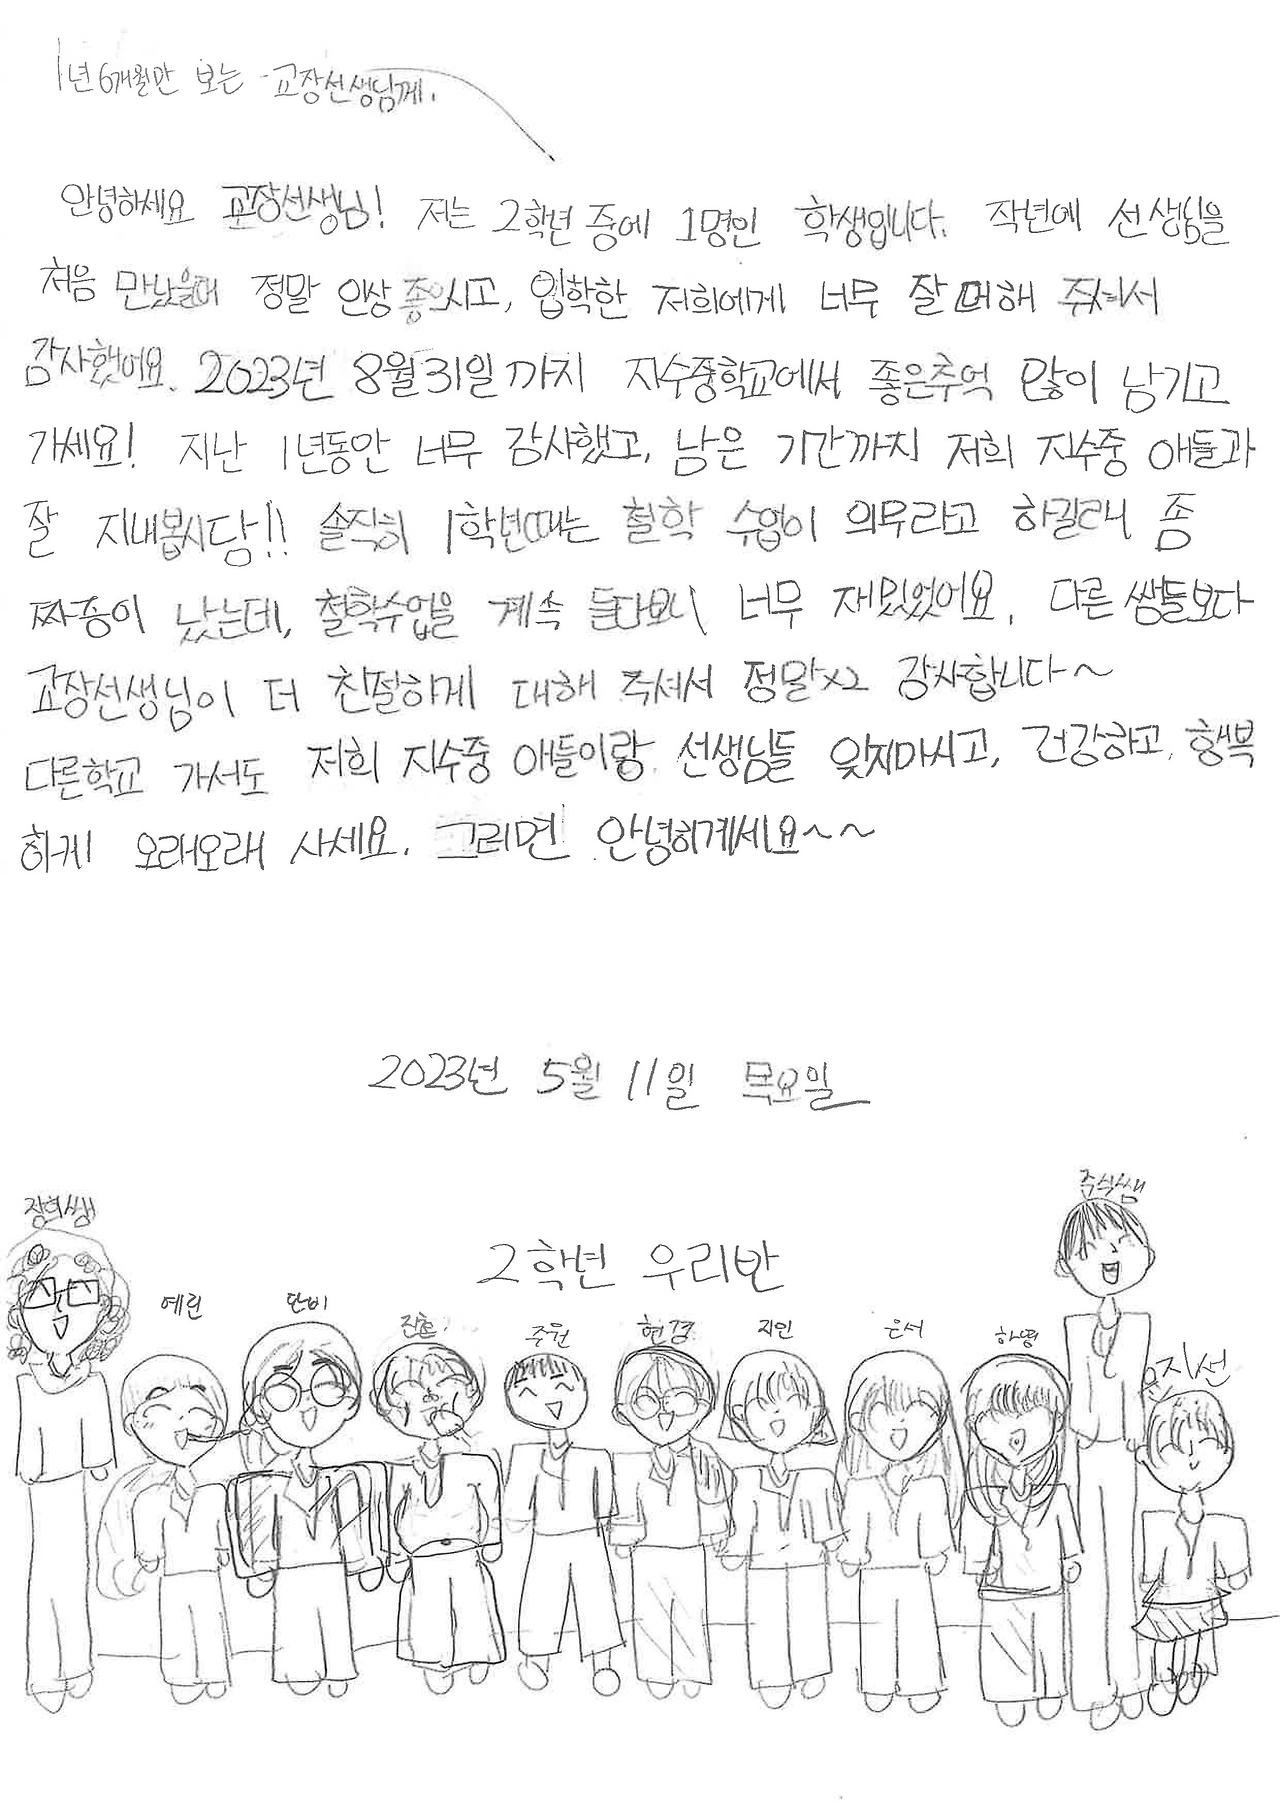 1년 6개월만 보는 교장선생님께.
안녕하세요 교장선생님! 저는 2학년 중에 1명인 학생입니다. 작년에 선생님을
처음 만났을때 정말 인상 좋으시고, 입학한 저희에게 너무 잘 대해 주셔서
감사했어요. 2023년 8월31일까지 지수중학교에서 좋은추억 많이 남기고
가세요! 지난 1년동안 너무 감사했고, 남은 기간까지 저희 지수중 애들과
잘 지내봅시당!! 솔직히 1학년때는 철학 수업이 의무라고 하길래 좀
짜증이 났는데, 철학수업을 계속 듣다보니 너무 재밌었어요. 다른 쌤들보다
교장선생님이 더 친절하게 대해 주셔서 정말x2 감사합니다~
다른학교 가서도 저희 지수중 애들이랑 선생님들 잊지마시고, 건강하고, 행복
하게 오래오래 사세요. 그러면 안녕히계세요~~
2023년 5월 11일 목요일
2학년 우리반
장희쌤
예린
단비
진호
주원
현경
지인
은서
하영
주식쌤
윤지선